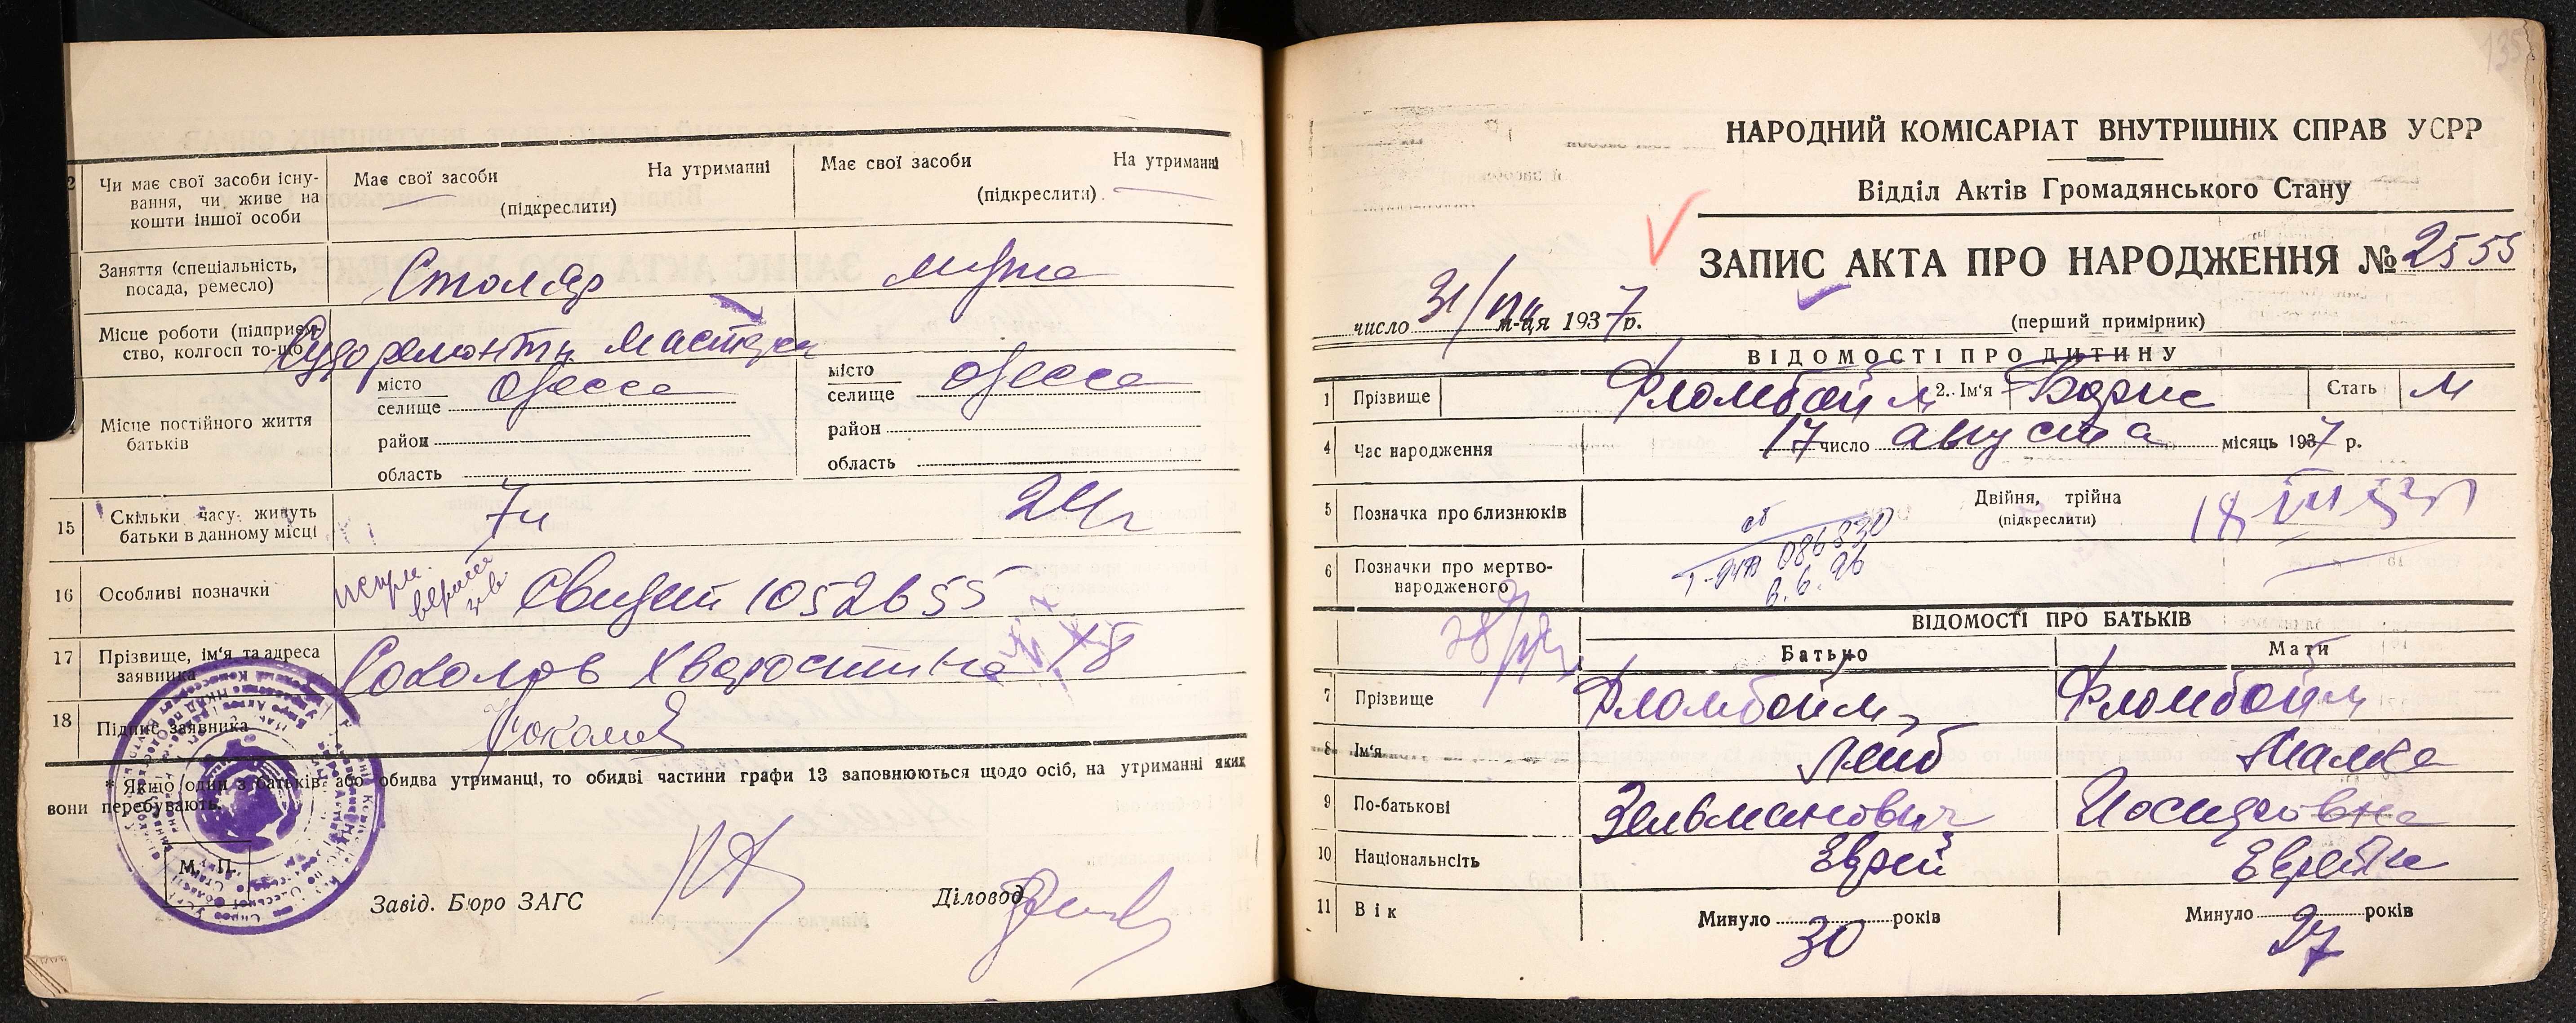 Чи має свої засоби існу-
вання, чи живе на
кошти іншої особи
Має свої засоби На утриманні
(підкреслити)
Має свої засоби На утриманні
(підкреслити)
Заняття (спеціальність,
посада, ремесло)
Столяр
мужа
Місце роботи (підприєм-
ство, колгосп то-що)
Судоремонтн мастерск
Місце постійного життя
батьків
місто
селище Одесса
район
область
місто
селище Одесса
район
область
15 Скільки часу живуть
батьки в данному місці
24 г
16 Особливі позначки
Свидет 1052655
17 Прізвище, ім'я та адреса
заявника
Соколов Хворостина 18
18 Підпис заявника
* Якщо один з батьків або обидва утриманці, то обидві частини графи 13 заповнюються щодо осіб, на утриманні яких
вони перебувають.
М. П.
Завід. Бюро ЗАГС
Діловод
135
НАРОДНИЙ КОМІСАРІАТ ВНУТРІШНІХ СПРАВ УСРР
Відділ Актів Громадянського Стану
ЗАПИС АКТА ПРО НАРОДЖЕННЯ № 2555
число 31/VIII м-ця 1937 р.
(перший примірник)
ВІДОМОСТІ ПРО ДИТИНУ
1 Прізвище Фломбойм 2. Ім'я Борис Стать М
4 Час народження 17 число августа місяць 1937 р.
5 Позначка про близнюків
Двійня, трійна
(підкреслити)
6 Позначки про мертво-
народженого
086830
ВІДОМОСТІ ПРО БАТЬКІВ
Батько Мати
7 Прізвище Фломбойм Фломбойм
8 Ім'я Лейб Малка
9 По-батькові Зельманович Иосифовна
10 Національність Еврей Еврейка
11 Вік Минуло 30 років Минуло 27 років